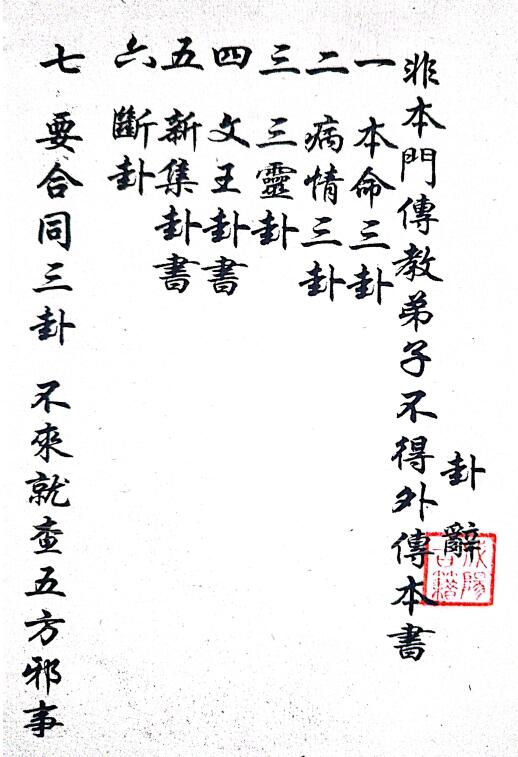 卦辭
非本門傳教弟子不得外傳本書
一 本命三卦
二 病情三卦
三 三靈卦
四 文王卦書
五 新集卦書
六 斷卦
七 要合同三卦 不來就查五方邪事